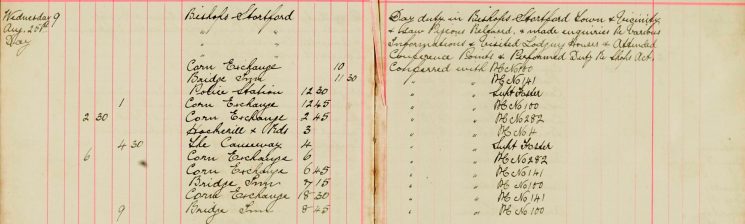 Wednesday 9 Bishops-Stortford Day duty in Bishops-Stortford Town & Vicinity
Aug. 25th " " & saw Pigeons Released, & made enquiries re Various
Day " " Informations & Visited Lodging Houses & Attended
" " Conference Points & Performed Duty Re Shops Act.
Corn Exchange 10 Conferred with PC No 100
Bridge Inn 11 30 " " PC No 141
Police Station 12 30 " " Supt Foster
1 Corn Exchange 12 45 " " PC No 100
2 30 Corn Exchange 2 45 " " PC No 282
Hockerill & Rds 3 " " PC No 4
4 30 The Causeway 4 " " Supt Foster
6 Corn Exchange 6 " " PC No 282
Corn Exchange 6 45 " " PC No 141
Bridge Inn 7 15 " " PC No 100
Corn Exchange 8 30 " " PC No 141
9 Bridge Inn 8 45 " " PC No 100